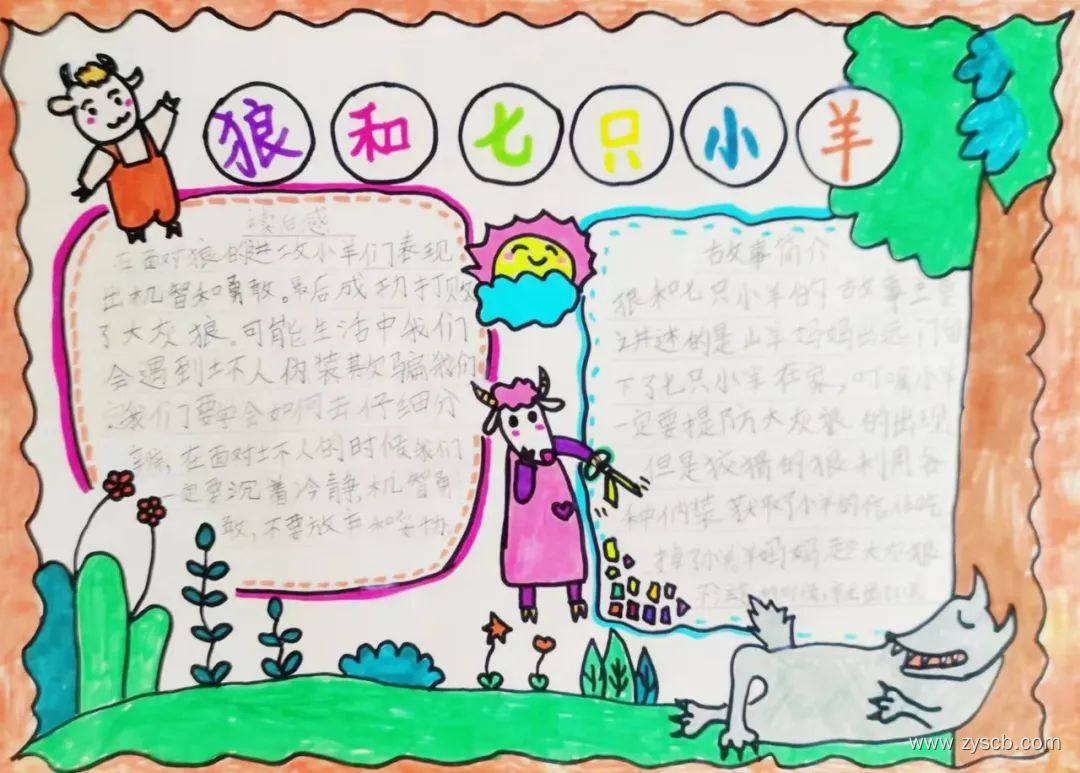 狼和七只小羊
读后感
在面对狼的进攻小羊们表现
出机智和勇敢。最后成功打败
了大灰狼。可能生活中我们
会遇到坏人伪装欺骗我们
我们要学会如何去仔细分
辨,在面对坏人的时候我们
一定要沉着冷静机智勇
敢,不要放弃和妥协
故事简介
狼和七只小羊的故事主要
讲述的是山羊妈妈出远门留
下了七只小羊在家,叮嘱小羊
一定要提防大灰狼的出现
但是狡猾的狼利用各
种伪装获取了小羊的信任吃
掉了小羊妈妈趁大灰狼
www.zyscb.com